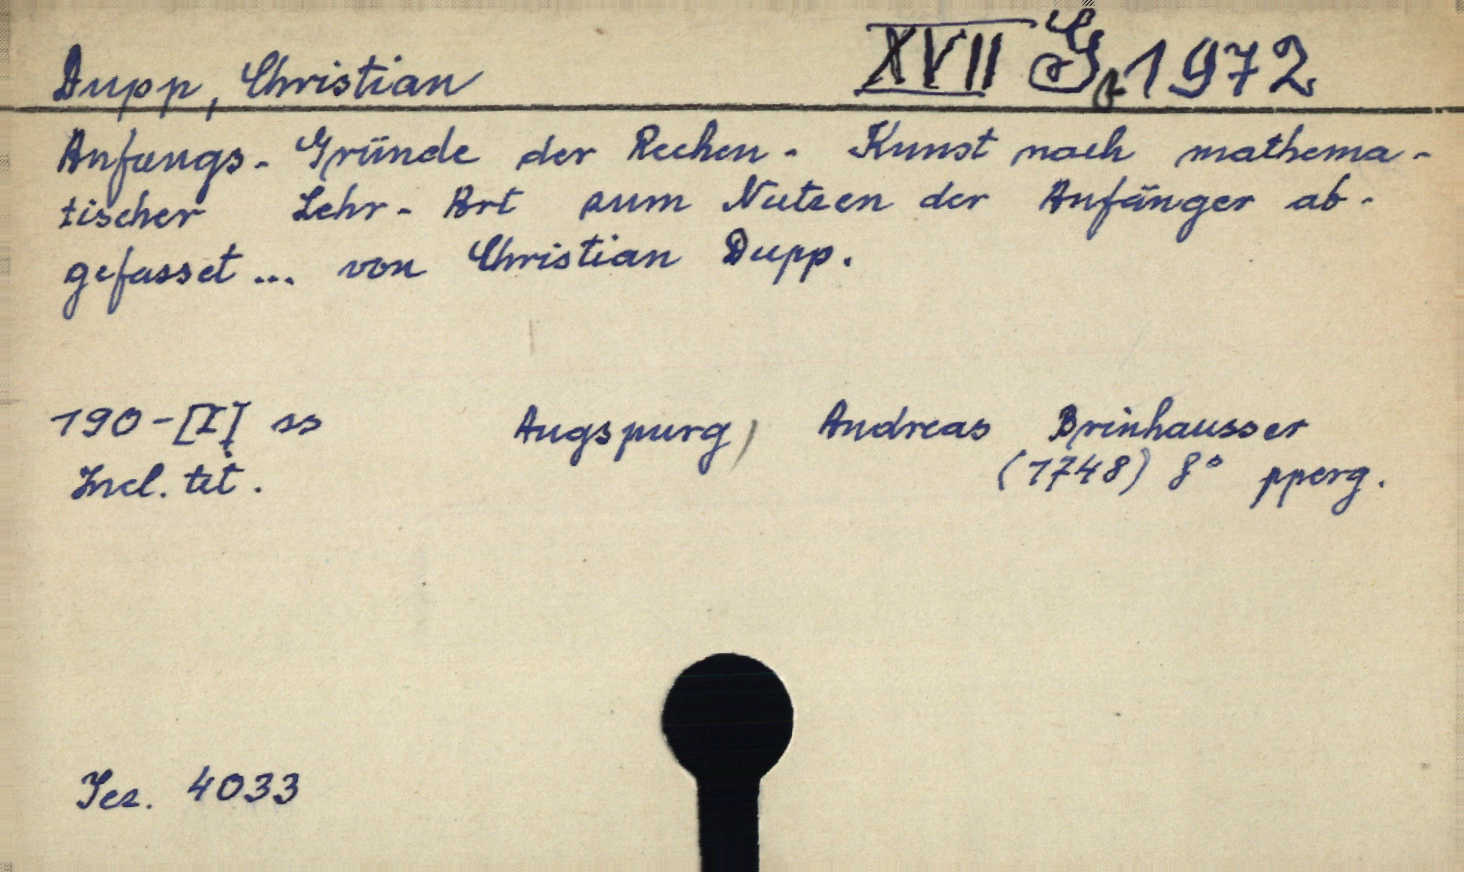 Dupp, Christian
XVII G, 1972
Anfangs-Gründe der Rechen-Kunst nach mathema-
tischer Lehr-Art zum Nutzen der Anfänger ab-
gefasset... von Christian Dupp.
190-[I] ss Augspurg, Andreas Brinhausser
Incl. tit. (1748) 8° pperg.
Jez. 4033